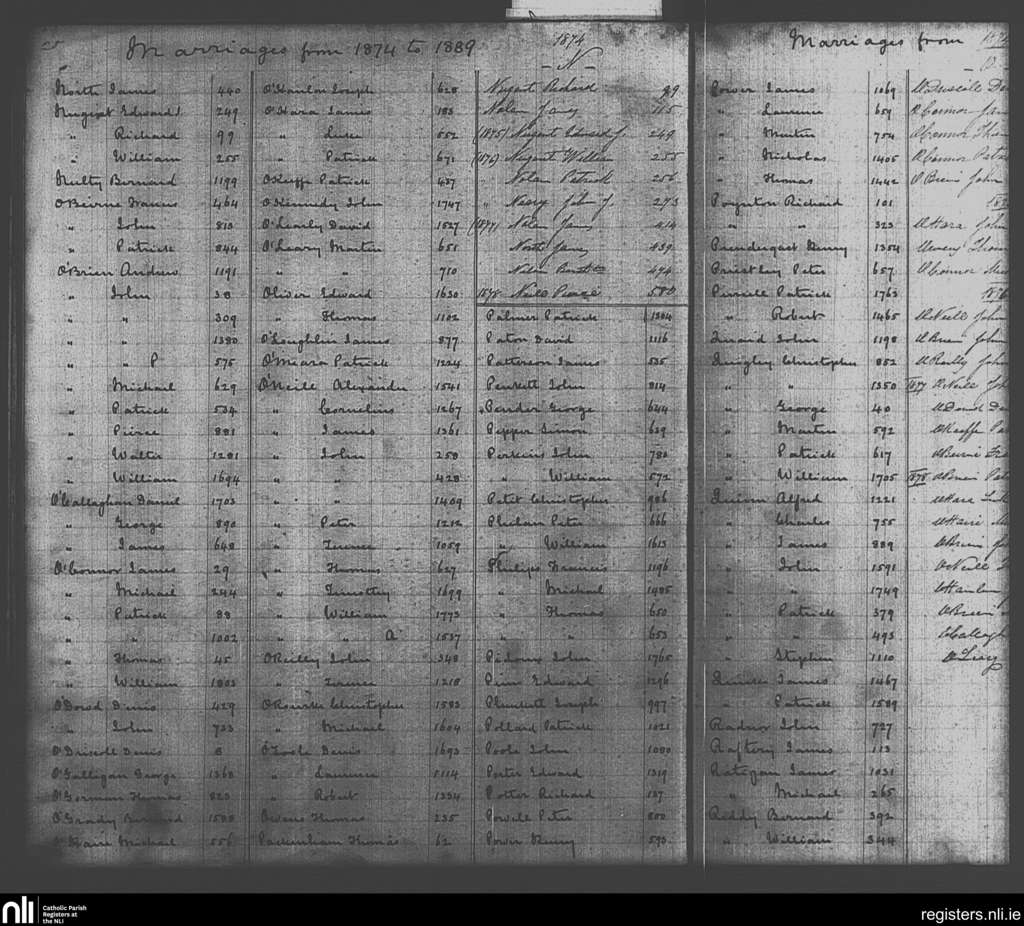 Marriages from 1874 to 1889
North James 440
Nugent Edward J 249
" Richard 99
" William 255
Nulty Bernard 1199
O'Beirne Francis 464
" John 813
" Patrick 844
O'Brien Andrew 1191
" John 38
" " 309
" " 1380
" P 575
" Michael 629
" Patrick 534
" Pierce 881
" Walter 1281
" William 1694
O'Callaghan Daniel 1703
" George 890
" James 648
O'Connor James 29
" Michael 244
" Patrick 88
" " 1002
" Thomas 45
" William 1803
O'Dowd Denis 429
" John 723
O'Driscoll Denis 8
O'Galligan George 1368
O'Gorman Thomas 823
O'Grady Bernard
O'Haire Michael 556
O'Hanlon Joseph 628
O'Hara James 183
" Luke 552
" Patrick 671
O'Keeffe Patrick 457
O'Kennedy John 1747
O'Leary David 1527
O'Leary Martin 651
" " 710
Oliver Edward 1630
" Thomas 1102
O'Loughlin James 877
O'Meara Patrick 1224
O'Neill Alexander 1541
" Cornelius 1267
" James 1361
" John 258
" " 428
" " 1409
" Peter 1212
" Terence 1059
" Thomas 627
" Timothy 1699
" William 1773
" " A 1537
O'Reilly John 348
" Terence 1218
O'Rourke Christopher 1583
" Michael 1604
O'Toole Denis 1693
" Laurence 1114
" Robert 1334
Owens Thomas 235
Packenham Thomas 62
1874
- N -
Nugent Richard 99
Nolan James 115
(1875) Nugent Edward J. 249
(1876) Nugent William 255
" Nolan Patrick 256
" Neary John J. 273
(1877) Nolan James 414
North James 439
Nolan 494
1878 Neill Pierce 580
Palmer Patrick 1364
Paton David 1116
Patterson James 535
Penkett John 814
Pender George 644
Pepper Simon 639
Perkins John 780
" William 572
Petit Christopher 986
Phelan Peter 666
" William 1613
Philips Francis 1196
" Michael 1485
" Thomas 650
" " 653
Pidoux John 1765
Pim Edward 1296
Plunkett Joseph 997
Pollard Patrick 1021
Poole John 1080
Porter Edward 1319
Potter Richard 137
Powell Peter 800
Power Henry 590
Marriages from
Power James 1069
" Laurence 659
" Martin 754
" Nicholas 1405
" Thomas 1442
Poynton Richard 101
" " 323
Prendergast Henry 1354
Priestley Peter 657
Purcell Patrick 1763
" Robert 1465
Quaid John 1198
Quigley Christopher 852
" " 1350
" George 40
" Martin 592
" Patrick 617
" William 1705
Quinn Alfred 1221
" Charles 755
" James 889
" John 1591
" " 1749
" Patrick 379
" " 493
" Stephen 1110
James 1467
" Patrick 1589
Radnor John 727
Raftery James 113
Ratigan James 1031
" Michael 265
Reddy Bernard 392
" William 344
O'Driscoll
O'Connor
O'Connor
O'Connor
O'Brien John
O'Hara John
O'Connor
O'Neill John
O'Brien John
O'Reilly John
1877 O'Neill
O'Dowd
O'Keeffe
O'Beirne
1878 O'Brien
O'Hara
O'Haire
O'Brien
O'Neill
O'Hanlon
O'Brien
nli
Catholic Parish
Registers at
the NLI
registers.nli.ie